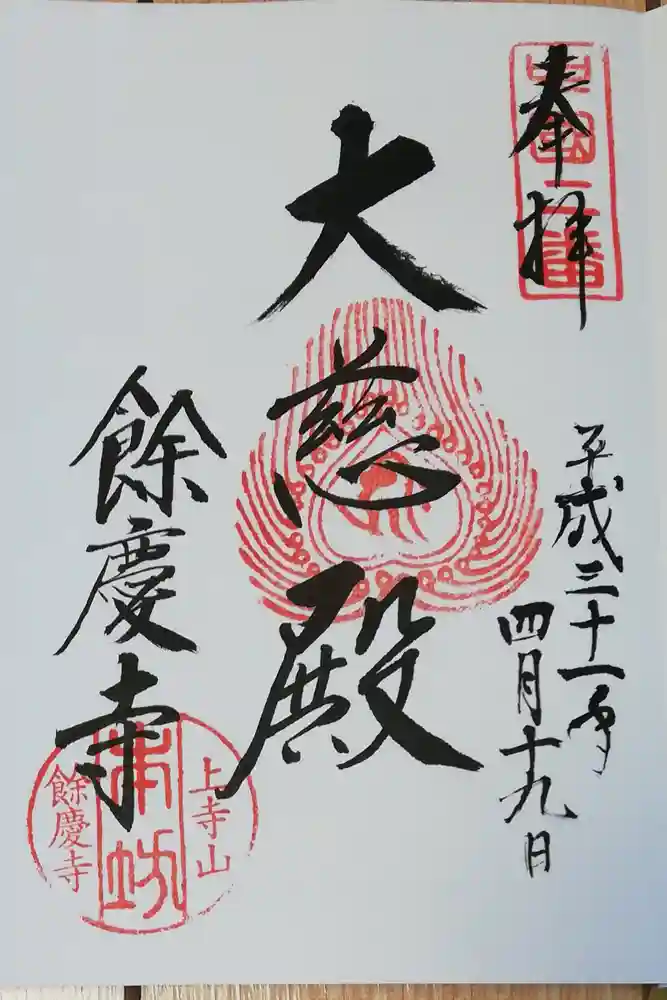 奉拝
中国二番
平成三十一年
四月十九日
大慈殿
餘慶寺
上寺山
本坊
餘慶寺